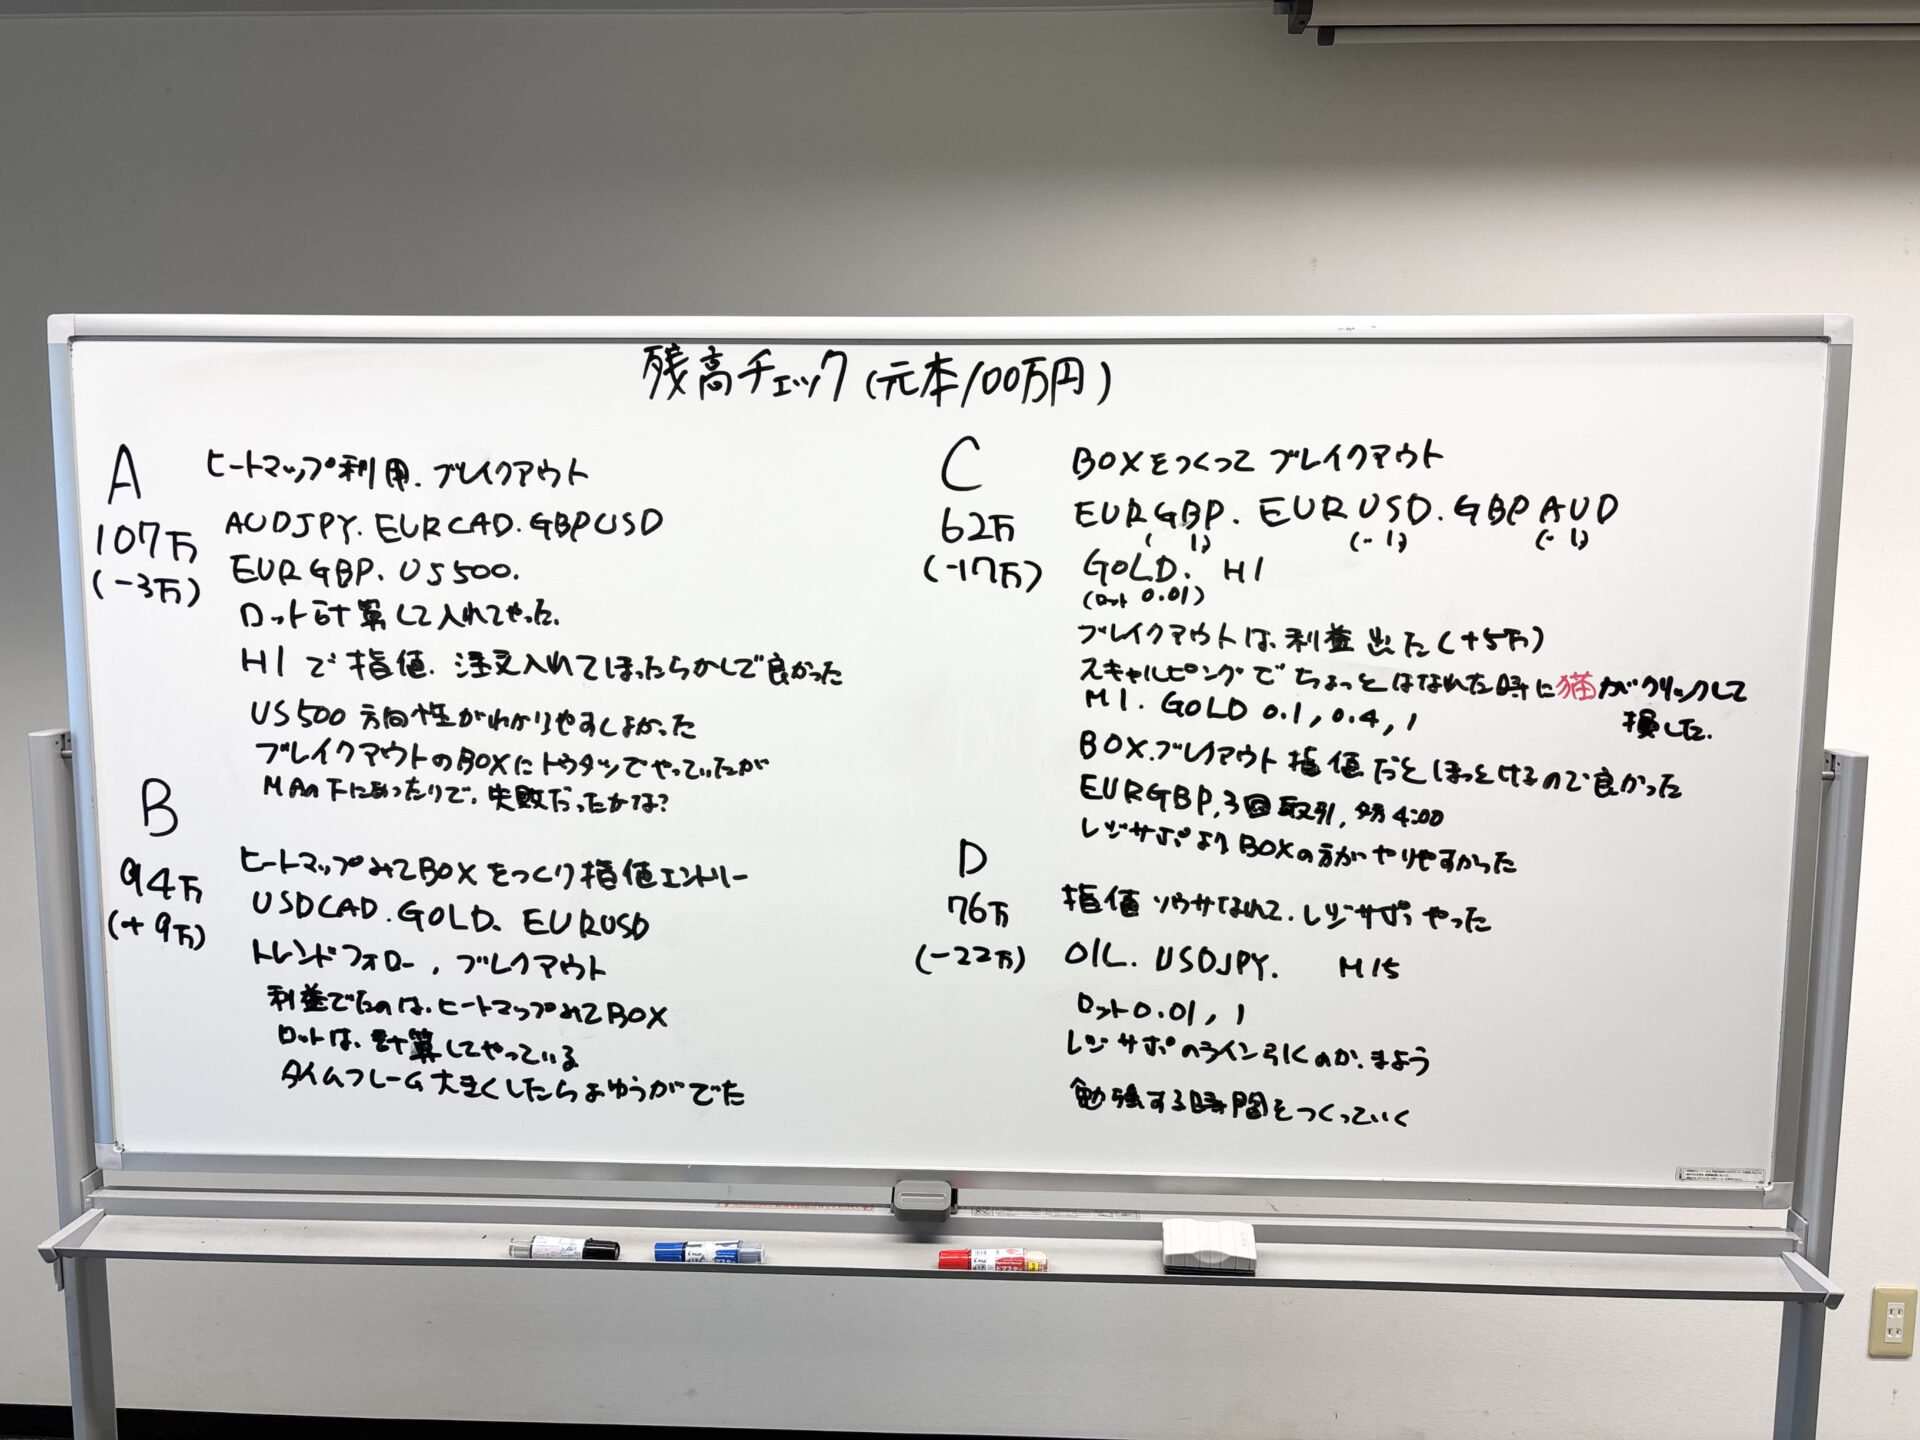 残高チェック(元本100万円)
A
107万
(-3万)
ヒートマップ利用.ブレイクアウト
AUDJPY.EURCAD.GBPUSD
EURGBP.US500.
ロット計算して入れてやった.
H1で指値.注文入れてほったらかしで良かった
US500方向性がわかりやすしよかった
ブレイクアウトのBOXにトウタツでやっていたが
MAの下にあったりで.失敗だったかな?
B
94万
(+9万)
ヒートマップみてBOXをつくり指値エントリー
USDCAD.GOLD.EURUSD
トレンドフォロー,ブレクアウト
利益でたのは.ヒートマップみてBOX
ロットは、計算してやっている
タイムフレーム大きくしたらよゆうがでた
C
62万
(-17万)
BOXをつくってブレイクアウト
EURGBP.EURUSD.GBPAUD
( 1) (〃1) (〃1)
GOLD. H1
(ロット0.01)
ブレイクアウトは.利益出た(+5万)
スキャルピングでちょっとはなれた時に猫がクリックして
損した.
M1.GOLD 0.1,0.4,1
BOX.ブレイアウト指値だとほっとけるので良かった
EURGBP,3回取引,夕方4:00
レジサポよりBOXの方がやりやすかった
D
76万
(-22万)
指値ソウサなれて.レジサポやった
OIL.USDJPY. M15
ロット0.01,1
レジサポのライン引くのが.まよう
勉強する時間をつくっていく